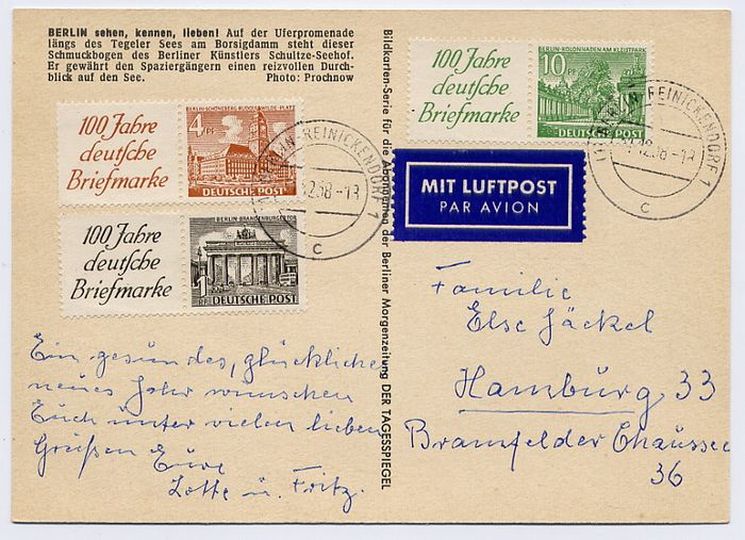 BERLIN sehen, kennen, lieben! Auf der Uferpromenade
längs des Tegeler Sees am Borsigdamm steht dieser
Schmuckbogen des Berliner Künstlers Schultze-Seehof.
Er gewährt den Spaziergängern einen reizvollen Durch-
blick auf den See. Photo: Prochnow
100 Jahre
deutsche
Briefmarke
BERLIN-SCHÖNEBERG RUDOLF-WILDE-PLATZ
4 PF
DEUTSCHE POST
100 Jahre
deutsche
Briefmarke
BERLIN-BRANDENBURGER TOR
1 PF
DEUTSCHE POST
BERLIN-REINICKENDORF 1
12.58-18
c
Ein gesundes, glückliches
neues Jahr wünschen
Euch unter vielen lieben
Grüßen Eure
Lotte u. Fritz.
Bildkarten-Serie für die Abonnenten der Berliner Morgenzeitung DER TAGESSPIEGEL
100 Jahre
deutsche
Briefmarke
BERLIN-KOLONNADEN AM KLEISTPARK
10 PF
DEUTSCHE POST
BERLIN-REINICKENDORF 1
12.58-18
c
MIT LUFTPOST
PAR AVION
Familie
Else Jäckel
Hamburg 33
Bramfelder Chaussee
36